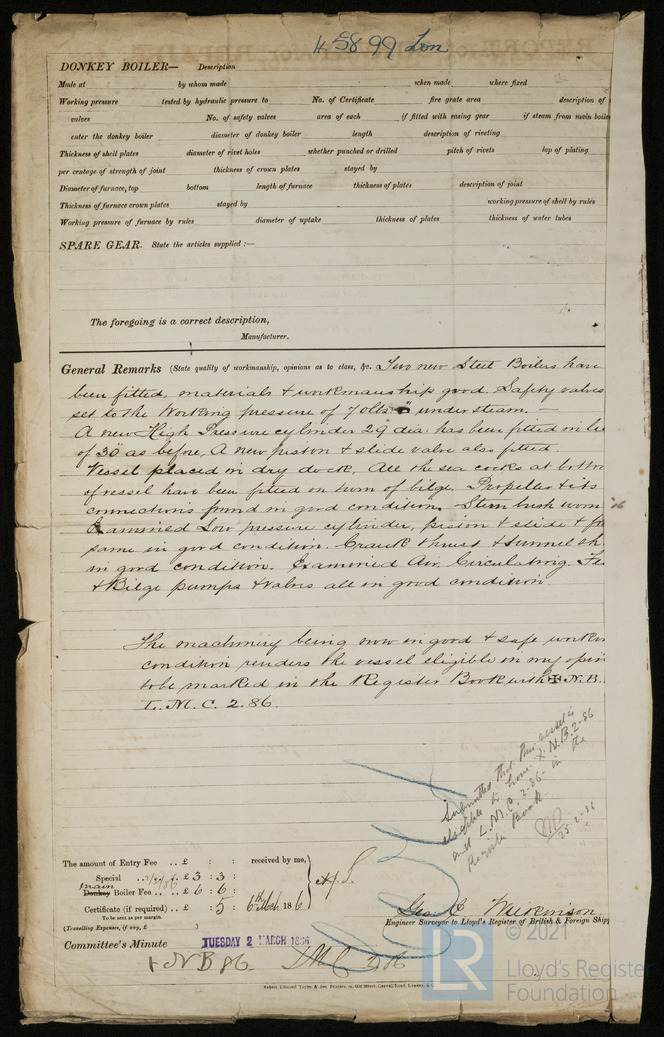 4589 Lon
DONKEY BOILER— Description
Made at by whom made when made where fixed
Working pressure tested by hydraulic pressure to No. of Certificate fire grate area description of
valves No. of safety valves area of each if fitted with easing gear if steam from main boile
enter the donkey boiler diameter of donkey boiler length description of riveting
Thickness of shell plates diameter of rivet holes whether punched or drilled pitch of rivets lap of plating
per centage of strength of joint thickness of crown plates stayed by
Diameter of furnace, top bottom length of furnace thickness of plates description of joint
Thickness of furnace crown plates stayed by working pressure of shell by rules
Working pressure of furnace by rules diameter of uptake thickness of plates thickness of water tubes
SPARE GEAR. State the articles supplied :—
The foregoing is a correct description,
Manufacturer.
General Remarks (State quality of workmanship, opinions as to class, &c. Two new Steel Boilers have
been fitted, materials & workmanship good. Safety valves
set to the Working pressure of 70 lbs under steam. —
A new High Pressure cylinder 29 dia: has been fitted in lie
of 30" as before, A new piston & slide valve also fitted.
Vessel placed in dry dock, All the sea cocks at bottom
of vessel have been fitted on turn of bilge. Propeller & its
connections found in good condition. Stern bush worn
Examined Low pressure cylinder, piston & slide & fo
same in good condition. Crank thrust & tunnel sh
in good condition. Examined Air, Circulating, Fe
& Bilge pumps & valves all in good condition.
The machinery being now in good & safe workin
condition renders the vessel eligible in my opin
to be marked in the Register Book with ✠ N.B.
L.M.C. 2.86.
Submitted that this vessel is
eligible to have ✠ N.B. 2-86
and L.M.C. 2-86 in the
Register Book.
25-2-86
The amount of Entry Fee .. £ : : received by me,
Special .. £ 3 : 3 :
main
Donkey Boiler Fee .. £ 6 : 6 :
Certificate (if required) .. £ : 5 : 6th Mch 1886
To be sent as per margin.
(Travelling Expenses, if any, £ )
Geo. C. Wilkinson
Engineer Surveyor to Lloyd's Register of British & Foreign Shipp
Committee's Minute TUESDAY 2 MARCH 1886
+ N B 86 LMC 2.86
Robert Edmund Taylor & Son, Printers, 19, Old Street, Goswell Road, London, E.C.
© 2021
LR
Lloyd's Register
Foundation